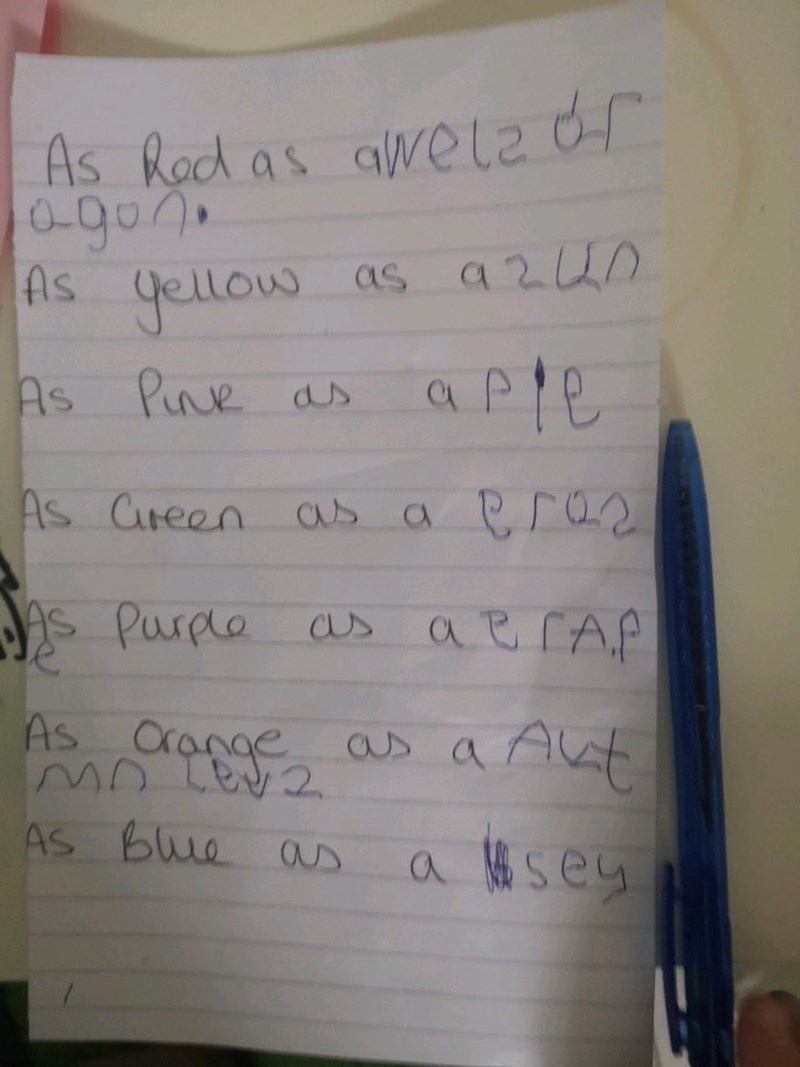 As Red as awelz dr
agon.
As yellow as a zun
As Pink as a Pie
As Green as a eraz
As Purple as a erAP
e
As Orange as a Aut
mn levz
As Blue as a sey